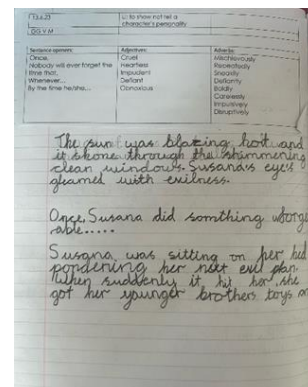 13.6.23 L: to show not tell a
character's personality
GG V M
Sentence openers: Adjectives: Adverbs:
Once, Cruel Mischievously
Nobody will ever forget the Heartless Repeatedly
time that... Impudent Sneakily
Whenever... Defiant Defiantly
By the time he/she... Obnoxious Boldly
Carelessly
Impulsively
Disruptively
The sun was blazing hot and
it shone through the shimmering
clean windows. Susana's eye's
gleamed with evilness.
Once, Susana did somthing
able.....
Susana was sitting on her bed
pondering her next evil plan
when suddenly it hit her, she
got her younger brothers toys